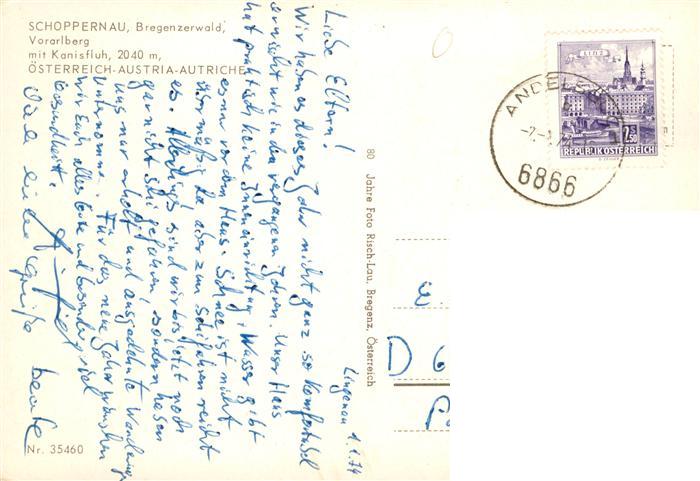 SCHOPPERNAU, Bregenzerwald,
Vorarlberg
mit Kanisfluh, 2040 m,
ÖSTERREICH-AUSTRIA-AUTRICHE
Lingenau 1.1.74
Liebe Eltern!
Wir haben es dieses Jahr nicht ganz so komfortabel
erwischt wie in den vergangenen Jahren. Unser Haus
hat praktisch keine Inneneinrichtung, Wasser gibt
es nur vor dem Haus. Schnee ist nicht
übermäßig da aber zum Schifahren reicht
es. Allerdings sind wir bis jetzt noch
gar nicht Ski gefahren, sondern haben
uns nur erholt und ausgedehnte Wanderungen
unternommen. Für das neue Jahr wünschen
wir Euch alles Gute und besonders viel
Gesundheit.
Viele liebe Grüße
Beate
Nr. 35460
80 Jahre Foto Risch-Lau, Bregenz, Österreich
LINZ
2.50
S
REPUBLIK ÖSTERREICH
6866
D 6